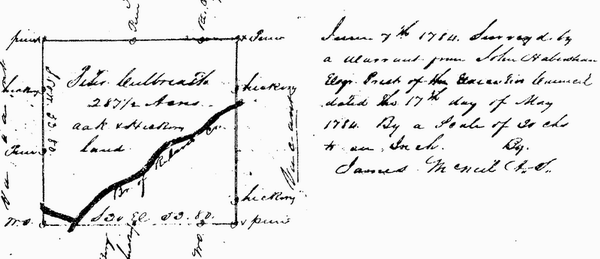 pine
Pine
hickory
Vacant
Peter Culbreath
287½ Acres
oak & Hickory
land
hickory
Pine
Vacant
Br. of
hickory
W.O.
S 30 E 53.80
pine
W.O.
June 7th 1784. Surveyd. by
a warrant from John Habersham
Esqr. Prest of the Executive Council
dated the 17th day of May
1784. By a Scale of 20 chs
to an Inch. By.
James McNeil D.S.